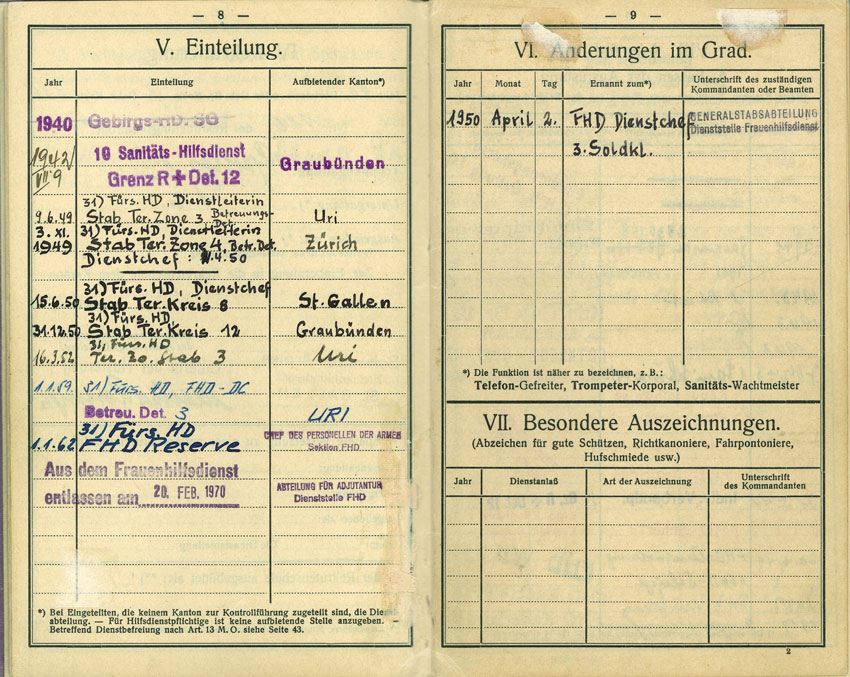 — 8 —
V. Einteilung.
Jahr Einteilung Aufbietender Kanton*)
1940 Gebirgs-HD. SG
1942/ 10 Sanitäts-Hilfsdienst Graubünden
VII.9 Grenz R+Det. 12
31) Fürs. HD, Dienstleiterin
9.6.49 Stab Ter. Zone 3, Betreuungs-Det. Uri
3. XI. 31) Fürs. HD, Dienstleiterin
1949 Stab Ter. Zone 4, Betr. Det. Zürich
Dienstchef: 4.50
31) Fürs. HD, Dienstchef
15.6.50 Stab Ter. Kreis 8 St. Gallen
31) Fürs. HD
31.12.50 Stab Ter. Kreis 12 Graubünden
31, Fürs. HD
16.3.52 Ter. Zo. Stab 3 Uri
1.1.59. 31) Fürs. HD, FHD-DC
Betreu. Det. 3 URI
31) Fürs. HD CHEF DES PERSONELLEN DER ARMEE
1.1.62 FHD Reserve Sektion FHD
Aus dem Frauenhilfsdienst ABTEILUNG FÜR ADJUTANTUR
entlassen am 20. FEB. 1970 Dienststelle FHD
*) Bei Eingeteilten, die keinem Kanton zur Kontrollführung zugeteilt sind, die Dienst-
abteilung. — Für Hilfsdienstpflichtige ist keine aufbietende Stelle anzugeben. —
Betreffend Dienstbefreiung nach Art. 13 M. O. siehe Seite 43.
— 9 —
VI. Änderungen im Grad.
Jahr Monat Tag Ernannt zum*) Unterschrift des zuständigen
Kommandanten oder Beamten
1950 April 2. FHD Dienstchef GENERALSTABSABTEILUNG
3. Soldkl. Dienststelle Frauenhilfsdienst
*) Die Funktion ist näher zu bezeichnen, z. B.:
Telefon-Gefreiter, Trompeter-Korporal, Sanitäts-Wachtmeister
VII. Besondere Auszeichnungen.
(Abzeichen für gute Schützen, Richtkanoniere, Fahrpontoniere,
Hufschmiede usw.)
Jahr Dienstanlaß Art der Auszeichnung Unterschrift
des Kommandanten
2